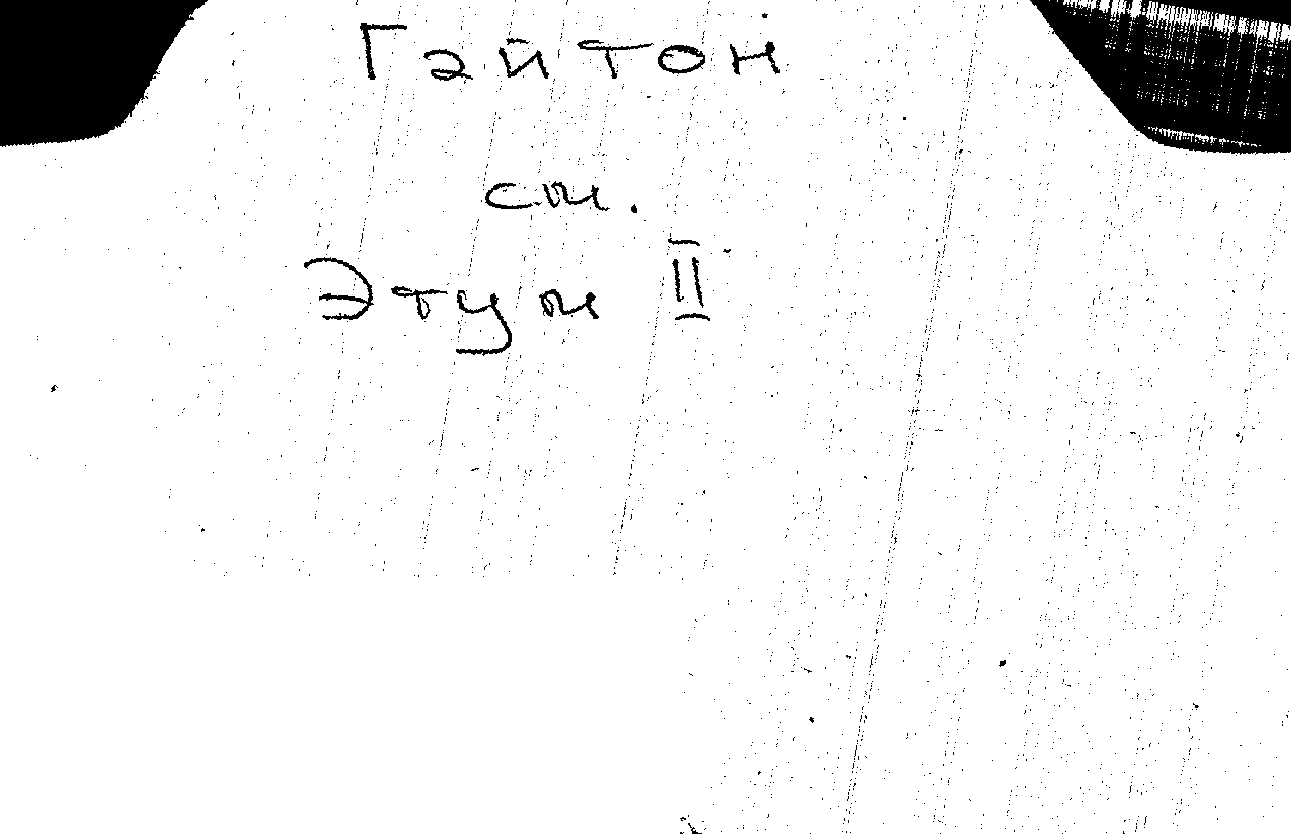 Гэйтон
см.
Этум II